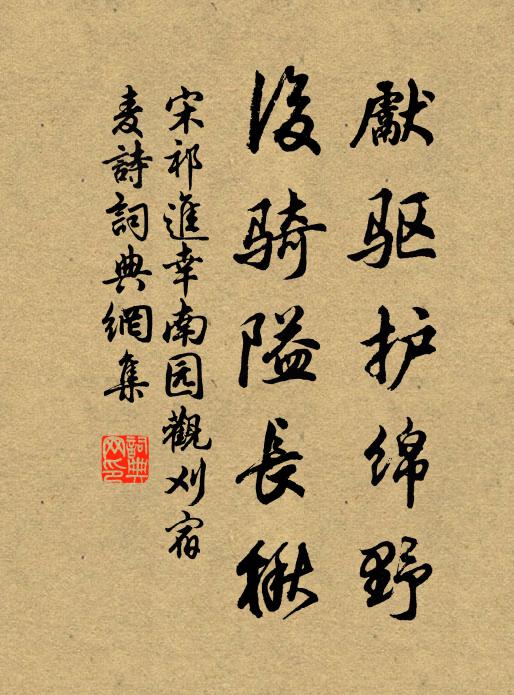 獻驱护绵野
後骑隘長楸
宋祁進幸南园觀刈宿
麦詩詞典網集
詞典网印